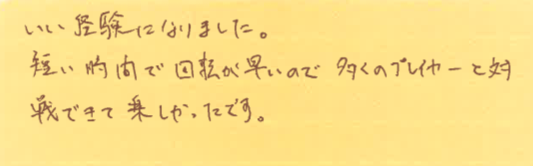 いい経験になりました。
短い時間で回転が早いので多くのプレイヤーと対
戦できて楽しかったです。